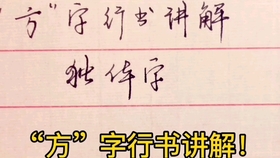 “方”字行书讲解
独体字
“方”字行书讲解！